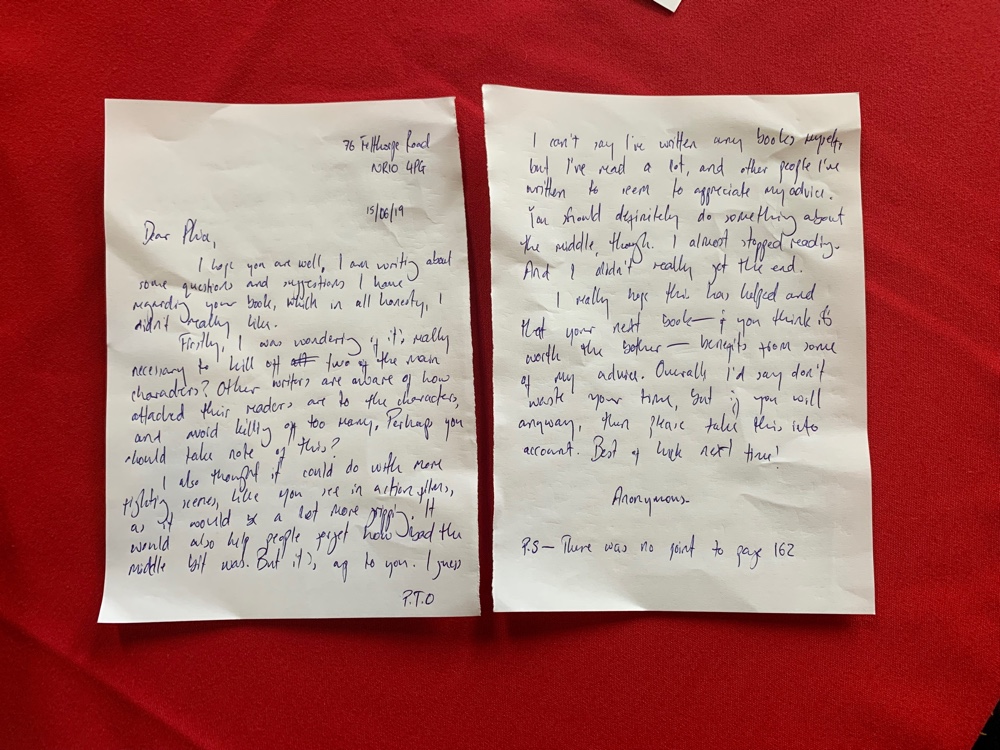 76 Felthorpe Road
NR10 4PG
15/06/19
Dear
I hope you are well, I am writing about
some questions and suggestions I have
regarding your book, which in all honesty, I
didn't really like.
Firstly, I was wondering if it's really
necessary to kill off two of the main
characters? Other writers are aware of how
attached their readers are to the characters,
and avoid killing off too many. Perhaps you
should take note of this?
I also thought it could do with more
fighting scenes, like you see in action films,
as it would be a lot more gripping. It
would also help people forget how bad the
middle bit was. But it's, up to you. I guess
P.T.O
I can't say I've written any books myself,
but I've read a lot, and other people I've
written to seem to appreciate my advice.
You should definitely do something about
the middle, though. I almost stopped reading.
And I didn't really get the end.
I really hope this has helped and
that your next book — if you think it's
worth the bother — benefits from some
of my advice. Overall I'd say don't
waste your time, but if you will
anyway, then please take this into
account. Best of luck next time!
Anonymous
P.S — There was no point to page 162